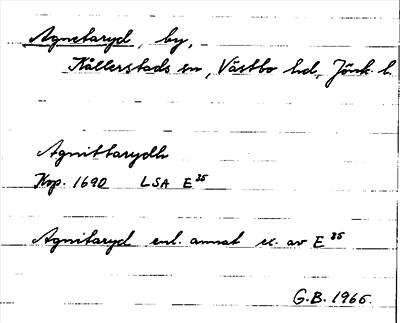 Agnetaryd, by,
Kållerstads sn, Västbo hd, Jönk. l.
Agnittarydh
Kop. 1690 LSA E 35
Agnitaryd enl. annat ex. av E 35
G.B. 1966.